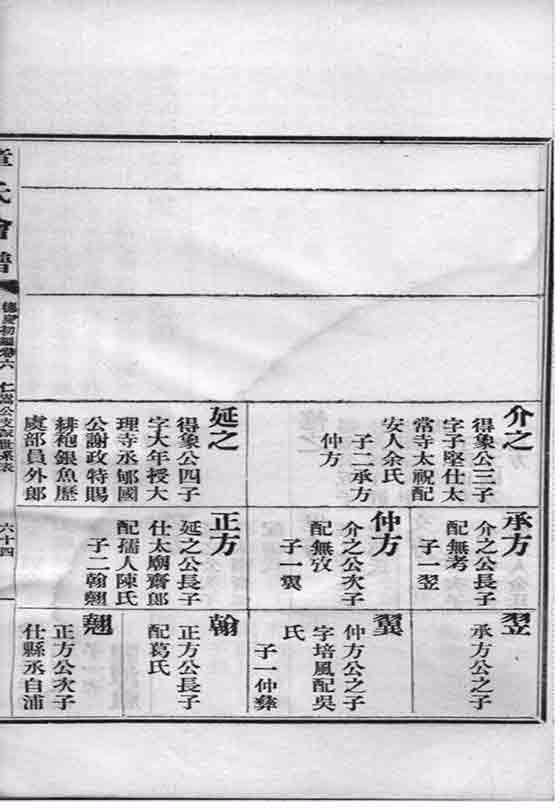 介之
得象公三子
字子堅仕太
常寺太祝配
安人余氏
子二承方
仲方
延之
得象公四子
字大年授大
理寺丞郇國
公謝政特賜
緋袍銀魚歷
虞部員外郎
承方
介之公長子
配無考
子一翌
仲方
介之公次子
配無攷
子一翼
正方
延之公長子
仕太廟齋郎
配孺人陳氏
子二翰翹
翌
承方公之子
翼
仲方公之子
字培風配吳
氏
子一仲彝
翰
正方公長子
配葛氏
翹
正方公次子
仕縣丞自浦
章氏會譜
德慶初編卷六
仁嵩公支派世系表
六十四